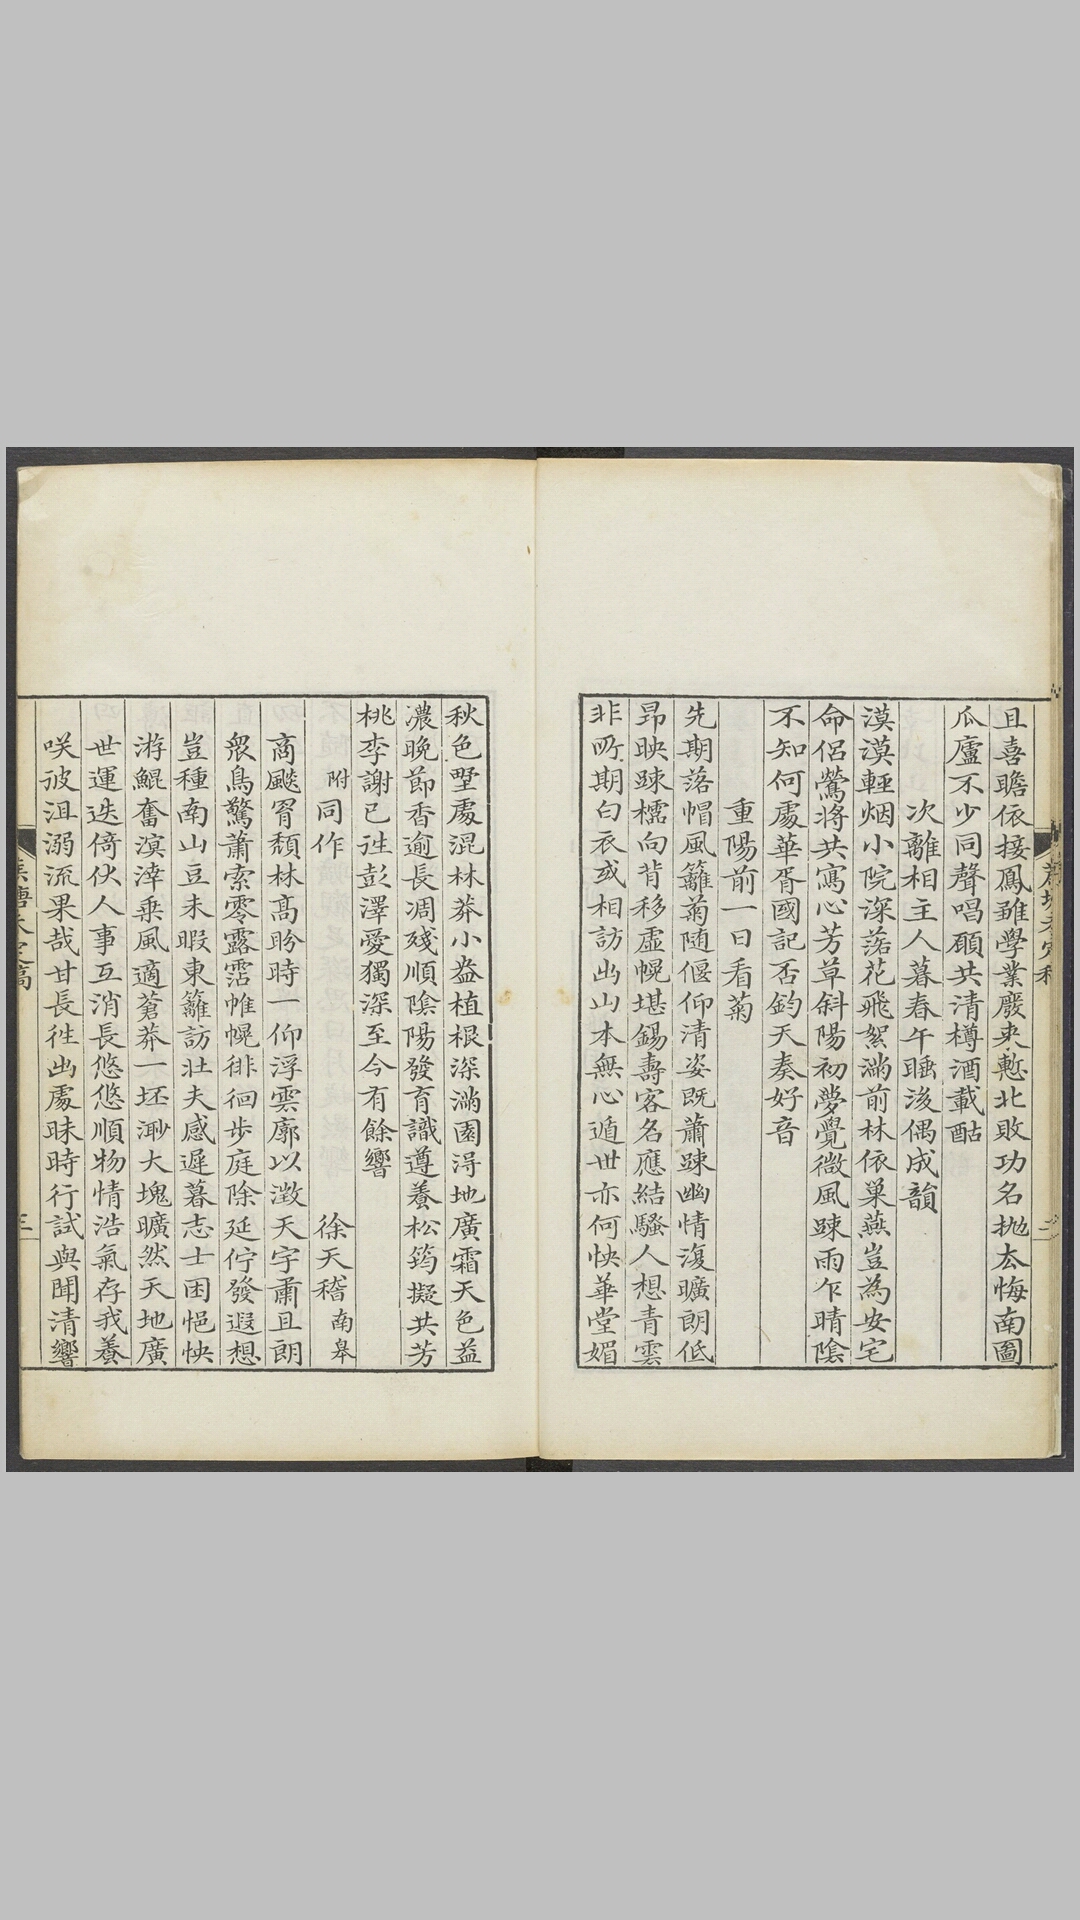 且喜瞻依接鳳雖學業廢来慙北敗功名抛去悔南圖
瓜廬不少同聲唱願共清樽酒載酤
次離相主人暮春午睡後偶成韻
漠漠輕烟小院深落花飛絮滿前林依巢燕豈為安宅
命侣鶯將共寫心芳草斜陽初夢覺微風踈雨乍晴隂
不知何處華胥國記否鈞天奏好音
重陽前一日看菊
先期落帽風籬菊随偃仰清姿既蕭踈幽情復曠朗低
昂映踈櫺向背移虚幌堪錫壽客名應結騷人想青雲
非所期白衣或相訪出山本無心遁世亦何怏華堂媚
秋色墅處混林莽小盎植根深滿園得地廣霜天色益
濃晚節香逾長凋殘順隂陽發育識遵養松筠擬共芳
桃李謝已往彭澤愛獨深至今有餘響
附同作 徐天稽南皋
商飈胥頹林高盻時一仰浮雲廓以澂天宇肅且朗
衆鳥驚蕭索零露霑帷幌徘徊步庭除延佇發遐想
豈種南山豆未暇東籬訪壯夫感遲暮志士困悒怏
游鯤奮溟滓乘風適蒼莽一坯渺大塊曠然天地廣
世運迭倚伏人事互消長悠悠順物情浩氣存我養
咲彼沮溺流果哉甘長往出處昧時行試與聞清響
三
二